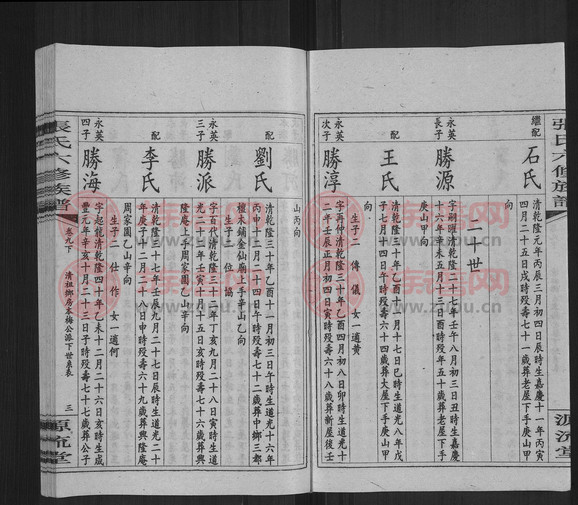 張氏六修族譜
源流堂
繼配
石氏
清乾隆元年丙辰三月初四日辰時生嘉慶十一年丙寅
四月二十五日戌時歿壽七十一歲葬老屋下手庚山甲
向
二十世
永英
長子
勝源
字嗣暉清乾隆二十七年壬午八月初三日丑時生嘉慶
十六年辛未五月十三日辰時歿壽五十歲葬老屋下手
庚山甲向
配
王氏
清乾隆三十年乙酉十一月十七日巳時生道光八年戊
子七月十四日酉時歿壽六十四歲葬大屋下手庚山甲
向
生子二 傳 儀 女一適黄
永英
次子
勝淳
字再仲清乾隆三十年乙酉四月初八日卯時生道光十
二年壬辰正月初四日寅時歿壽六十八歲葬新屋後壬
山丙向
配
劉氏
清乾隆三十年乙酉十一月初三日午時生道光十六年
丙申十二月初四日午時歿壽七十二歲葬中鄉三都
檀木鋪金仙廟上手辛山乙向
生子一 位 協
永英
三子
勝派
字百代清乾隆三十二年丁亥九月二十八日寅時生道
光二十二年壬寅十月十五日亥時歿壽七十六歲葬興
隆庵上手周家園乙山辛向
配
李氏
清乾隆三十七年壬辰九月二十八日辰時生道光二十
年庚子十二月二十八日申時歿壽六十九歲葬興隆庵
周家園乙山辛向
生子二 仕 作 女一適何
永英
四子
勝海
字起龍清乾隆四十年乙未十二月二十六日亥時生咸
豐元年辛亥十月二十三日子時歿壽七十七歲葬公子
張氏六修族譜
卷九下
清祖鄉房本梅公派下世系表
三
源流堂